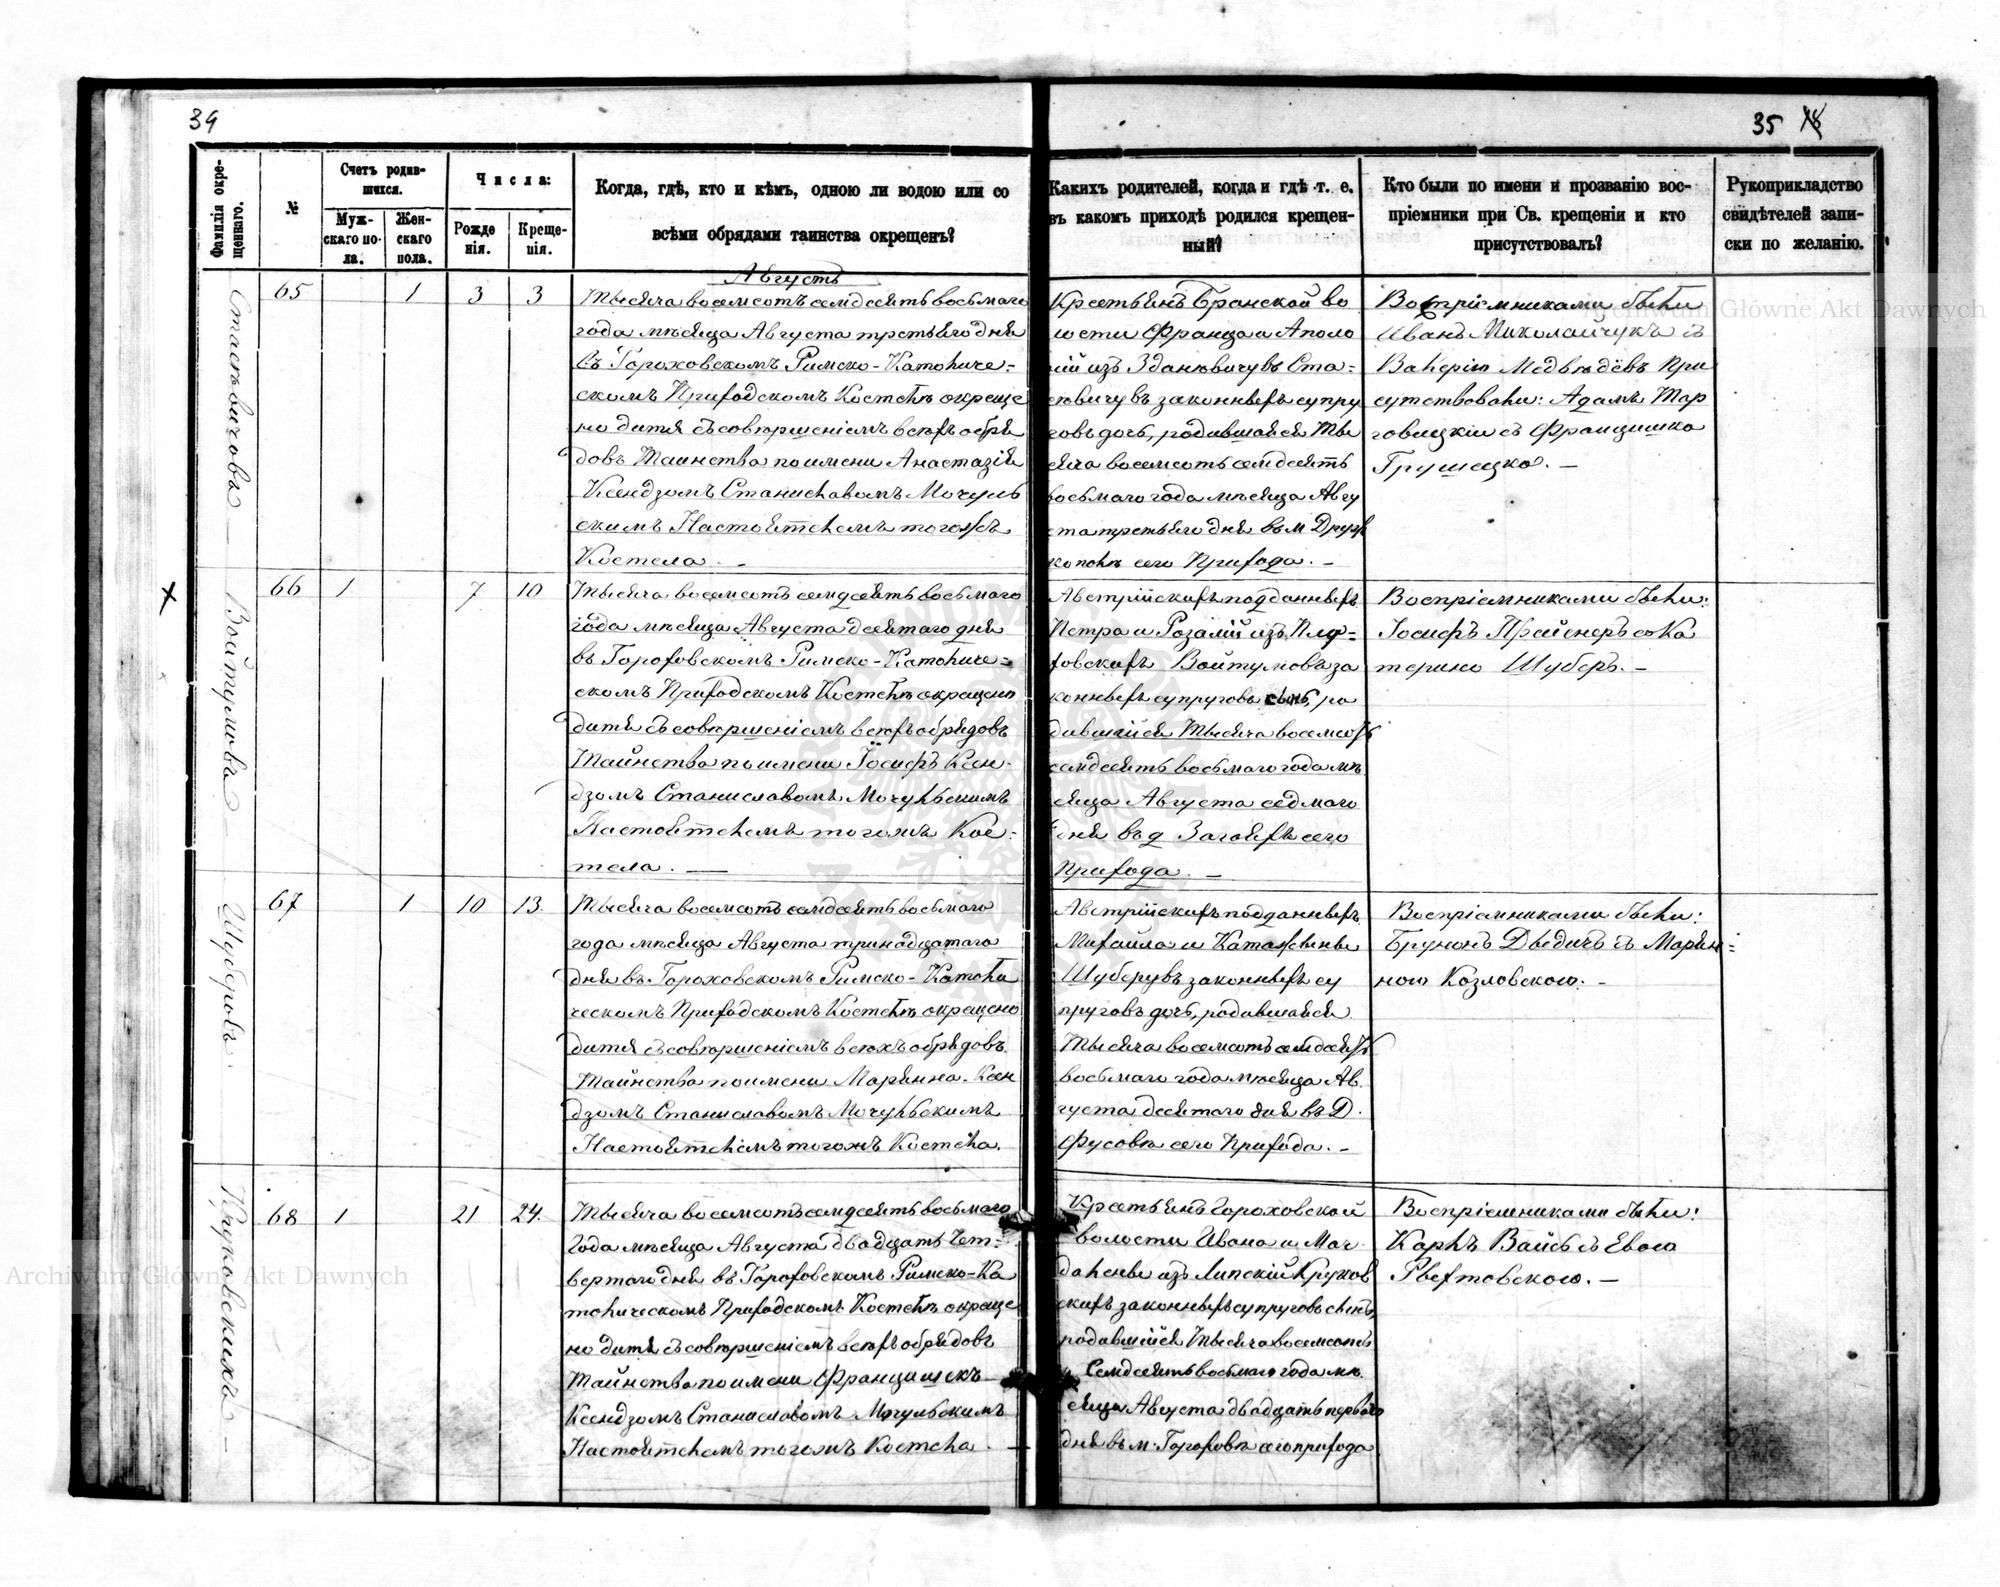 34
35 18
Фамилія окре-
щеннаго.
№
Счетъ родив-
шихся.
Муж-
скаго по-
ла.
Жен-
скаго
пола.
Числа:
Рожде
нія.
Креще-
нія.
Когда, гдѣ, кто и кѣмъ, одною ли водою или со
всѣми обрядами таинства окрещенъ?
Какихъ родителей, когда и гдѣ т. е.
въ какомъ приходѣ родился крещен-
ный?
Кто были по имени и прозванію вос-
пріемники при Св. крещеніи и кто
присутствовалъ?
Рукоприкладство
свидѣтелей запи-
ски по желанію.
Августъ
65 1 3 3
Тысяча восемсотъ семдсятъ восьмаго
года мѣсяца Августа третьяго дня
въ Гороховскомъ Римско-Католиче-
скомъ Приходскомъ Костелѣ окреще
но дитя съ совершеніемъ всѣхъ обря
довъ Таинства по имени Анастазія
Ксендзомъ Станиславомъ Мочуль
скимъ Настоятелемъ тогожъ
Костела. —
Крестьянъ Бранской во
лости Франца и Аполо
ній изъ Здановичувъ Ста-
севичувъ законныхъ супру
говъ дочь, родившаяся Ты
сяча восемсотъ семдсятъ
восьмаго года мѣсяца Авгу
ста третьяго дня въ м Друж
кополѣ сего Прихода. —
Воспріемниками были
Иванъ Миколайчукъ съ
Валерію Медвѣдёвъ При
сутствовали: Адамъ Тар
говицкій съ Францишка
Грушецка. —
Войтумовъ
66 1 7 10
Тысяча восемсотъ семдсятъ восьмаго
года мѣсяца Августа десятаго дня
въ Гороховскомъ Римско-Католиче-
скомъ Приходскомъ Костелѣ окрещено
дитя съ совершеніемъ всѣхъ обрядовъ
Таинства по имени Іосифъ Ксен-
дзомъ Станиславомъ Мочульскимъ
Настоятелемъ тогожъ Кос-
тела. —
Австрійскихъ подданныхъ
Петра и Розалій изъ
Войтумовъ за
конныхъ супруговъ сынъ, ро
дившійся Тысяча восемсотъ
семдсятъ восьмаго года мѣ
сяца Августа седмаго
дня въ д сего
Прихода. —
Воспріемниками были:
Іосифъ Прайснеръ со Ка
терино Шуберъ. —
Шуберовъ
67 1 10 13.
Тысяча восемсотъ семдсятъ восьмаго
года мѣсяца Августа тринадцатаго
дня въ Гороховскомъ Римско-Католи
ческомъ Приходскомъ Костелѣ окрещено
дитя съ совершеніемъ всѣхъ обрядовъ
Таинства по имени Марянна. Ксен
дзомъ Станиславомъ Мочульскимъ
Настоятелемъ тогожъ Костела.
Австрійскихъ подданныхъ
Михайла и Катажены
Шуберувъ законныхъ су
пруговъ дочь, родившаяся
Тысяча восемсотъ семдсятъ
восьмаго года мѣсяца Ав.
густа десятаго дня въ Д.
Фусовѣ сего Прихода. —
Воспріемниками были:
Брунонъ Дведичъ съ Марян-
ною Козловскою. —
Круковскихъ
68 1 21 24.
Тысяча восемсотъ семдсятъ восьмаго
Года мѣсяца Августа двадцать чет-
вертаго дня въ Гороховскомъ Римско-Ка
толическомъ Приходскомъ Костелѣ окреще
но дитя съ совершеніемъ всѣхъ обрядовъ
Таинства по имени Францишекъ
Ксендзомъ Станиславомъ Мочульскимъ
Настоятелемъ тогожъ Костела. —
Крестьянъ Гороховской
волости Ивана и Маг-
далены изъ Липскій Круков
скихъ законныхъ супруговъ сынъ,
родившійся Тысяча восемсотъ
Семдсятъ восьмаго года мѣ.
сяца Августа двадцать перваго
дня въ м. Гороховѣ сего прихода
Воспріемниками были:
Карлъ Вайсъ съ Евою
Рвехтовскою. —
Archiwum Główne Akt Dawnych
Archiwum Główne Akt Dawnych